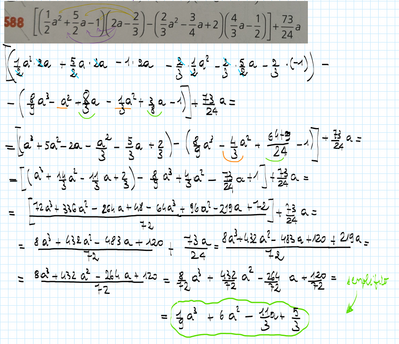 588 [(1/2 a² + 5/2 a - 1)(2a - 2/3) - (2/3 a² - 3/4 a + 2)(4/3 a - 1/2)] + 73/24 a
[(1/2 a² · 2a + 5/2 a · 2a - 1 · 2a - 2/3 · 1/2 a² - 2/3 · 5/2 a - 2/3 · (-1)) -
- (8/9 a³ - a² + 8/3 a - 1/3 a² + 3/8 a - 1)] + 73/24 a =
= [(a³ + 5a² - 2a - a²/3 - 5/3 a + 2/3) - (8/9 a³ - 4/3 a² + 64+9/24 - 1)] + 73/24 a =
= [(a³ + 14/3 a² - 11/3 a + 2/3) - 8/9 a³ + 4/3 a² - 73/24 a + 1] + 73/24 a =
= [72a³ + 336a² - 264a + 48 - 64a³ + 96a² - 219a + 72 / 72] + 73/24 a =
= 8a³ + 432a² - 483a + 120 / 72 + 73a/24 = 8a³ + 432a² - 483a + 120 + 219a / 72 =
= 8a³ + 432a² - 264a + 120 / 72 = 8/72 a³ + 432/72 a² - 264/72 a + 120/72 =
semplifico
= 1/9 a³ + 6a² - 11/3 a + 5/3